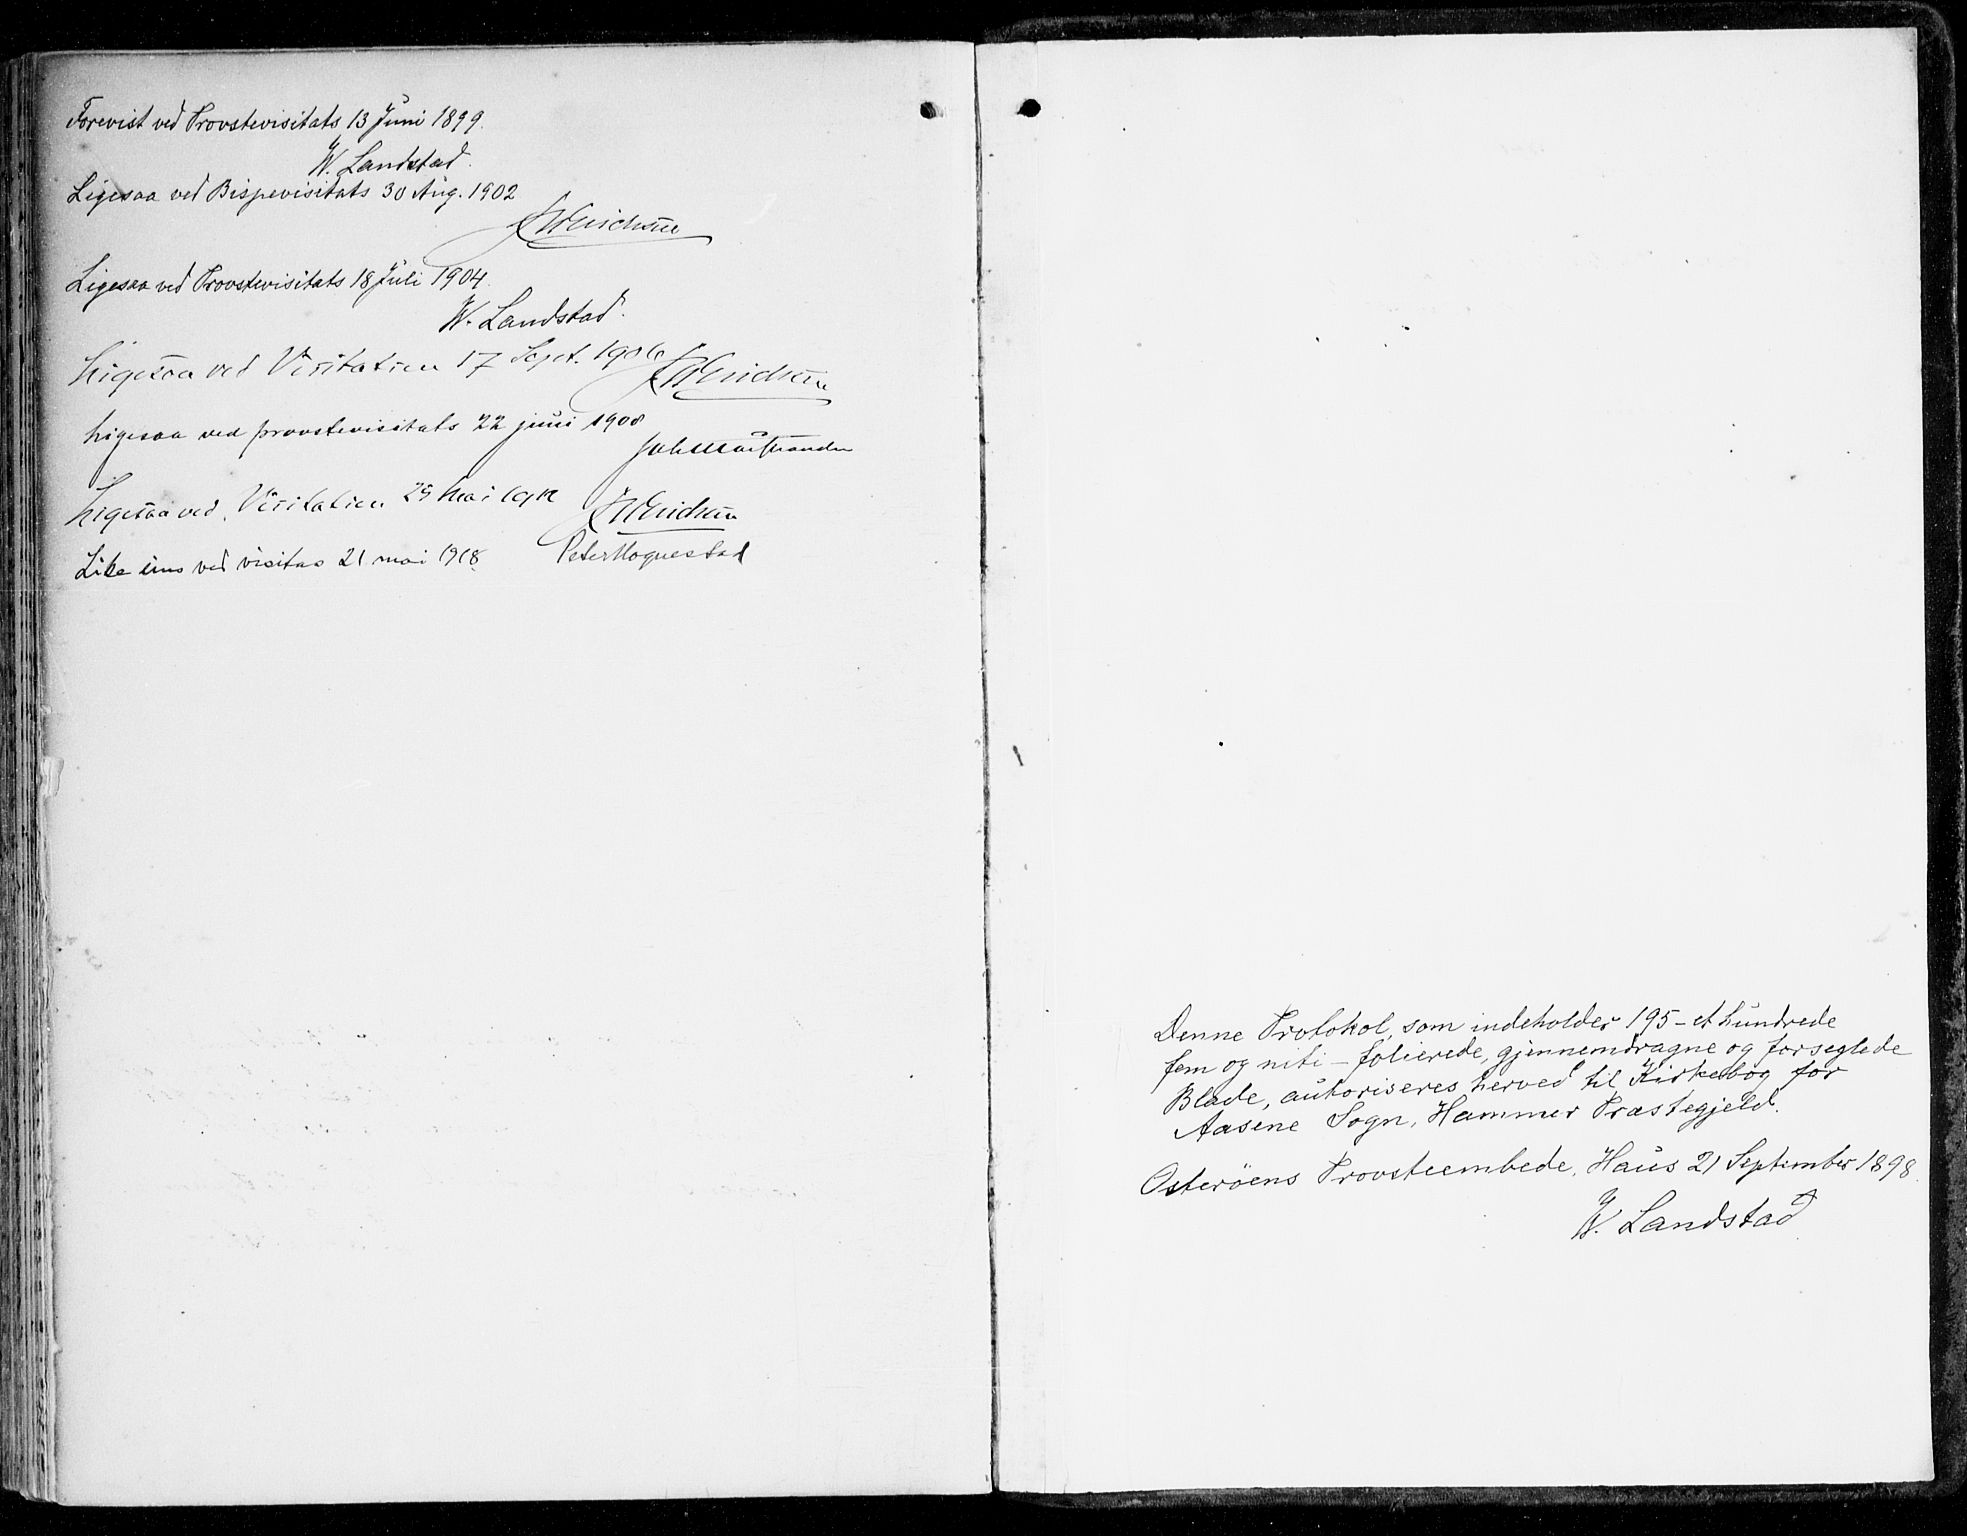 Forevist ved Provstevisitats 13 Juni 1899.
W. Landstad.
Ligesaa ved Bispevisitats 30 Aug. 1902
Ligesaa ved Provstevisitats 18 Juli 1904.
W. Landstad.
Ligesaa ved Visitatien 17 Sept. 1906
Ligesaa ved provstevisitats 22 juni 1908
Ligesaa ved Visitatien 29 Mai 1912
Like eins ved visitas 21 mai 1918. Peter Hognestad
Denne Protokol, som indeholder 195 - et hundrede
fem og niti - folierede, gjennemdragne og forseglede
Blade, autoriseres herved til Kirkebog for
Aasene Sogn, Hammer Præstegjeld.
Osterøens Provsteembede, Haus 21 September 1898.
W. Landstad